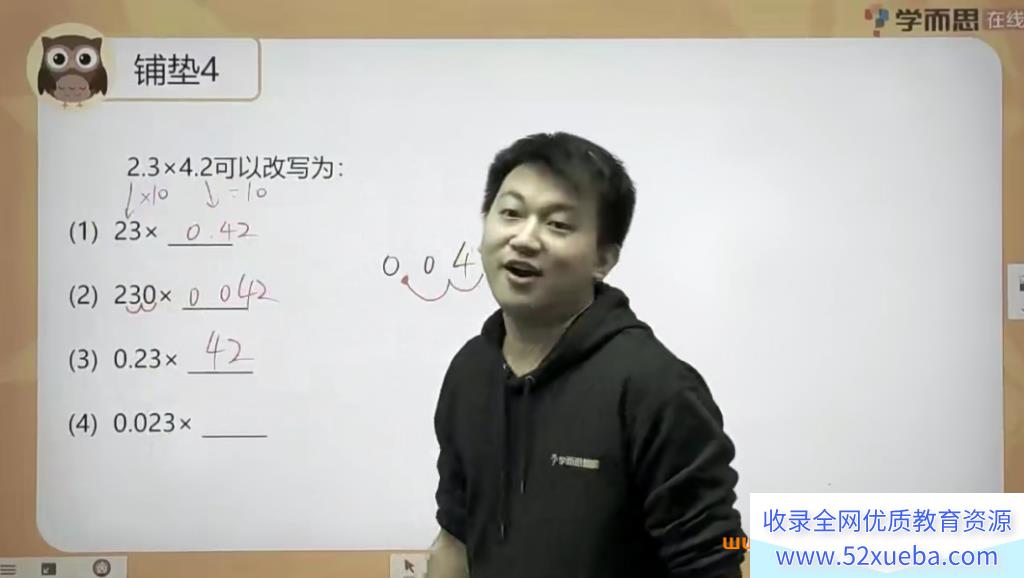 学而思在线
铺垫4
2.3×4.2可以改写为：
×10 ÷10
(1) 23× 0.42
(2) 230× 0 042
0 0 4
(3) 0.23× 42
(4) 0.023×
学而思
收录全网优质教育资源
www.52xueba.com